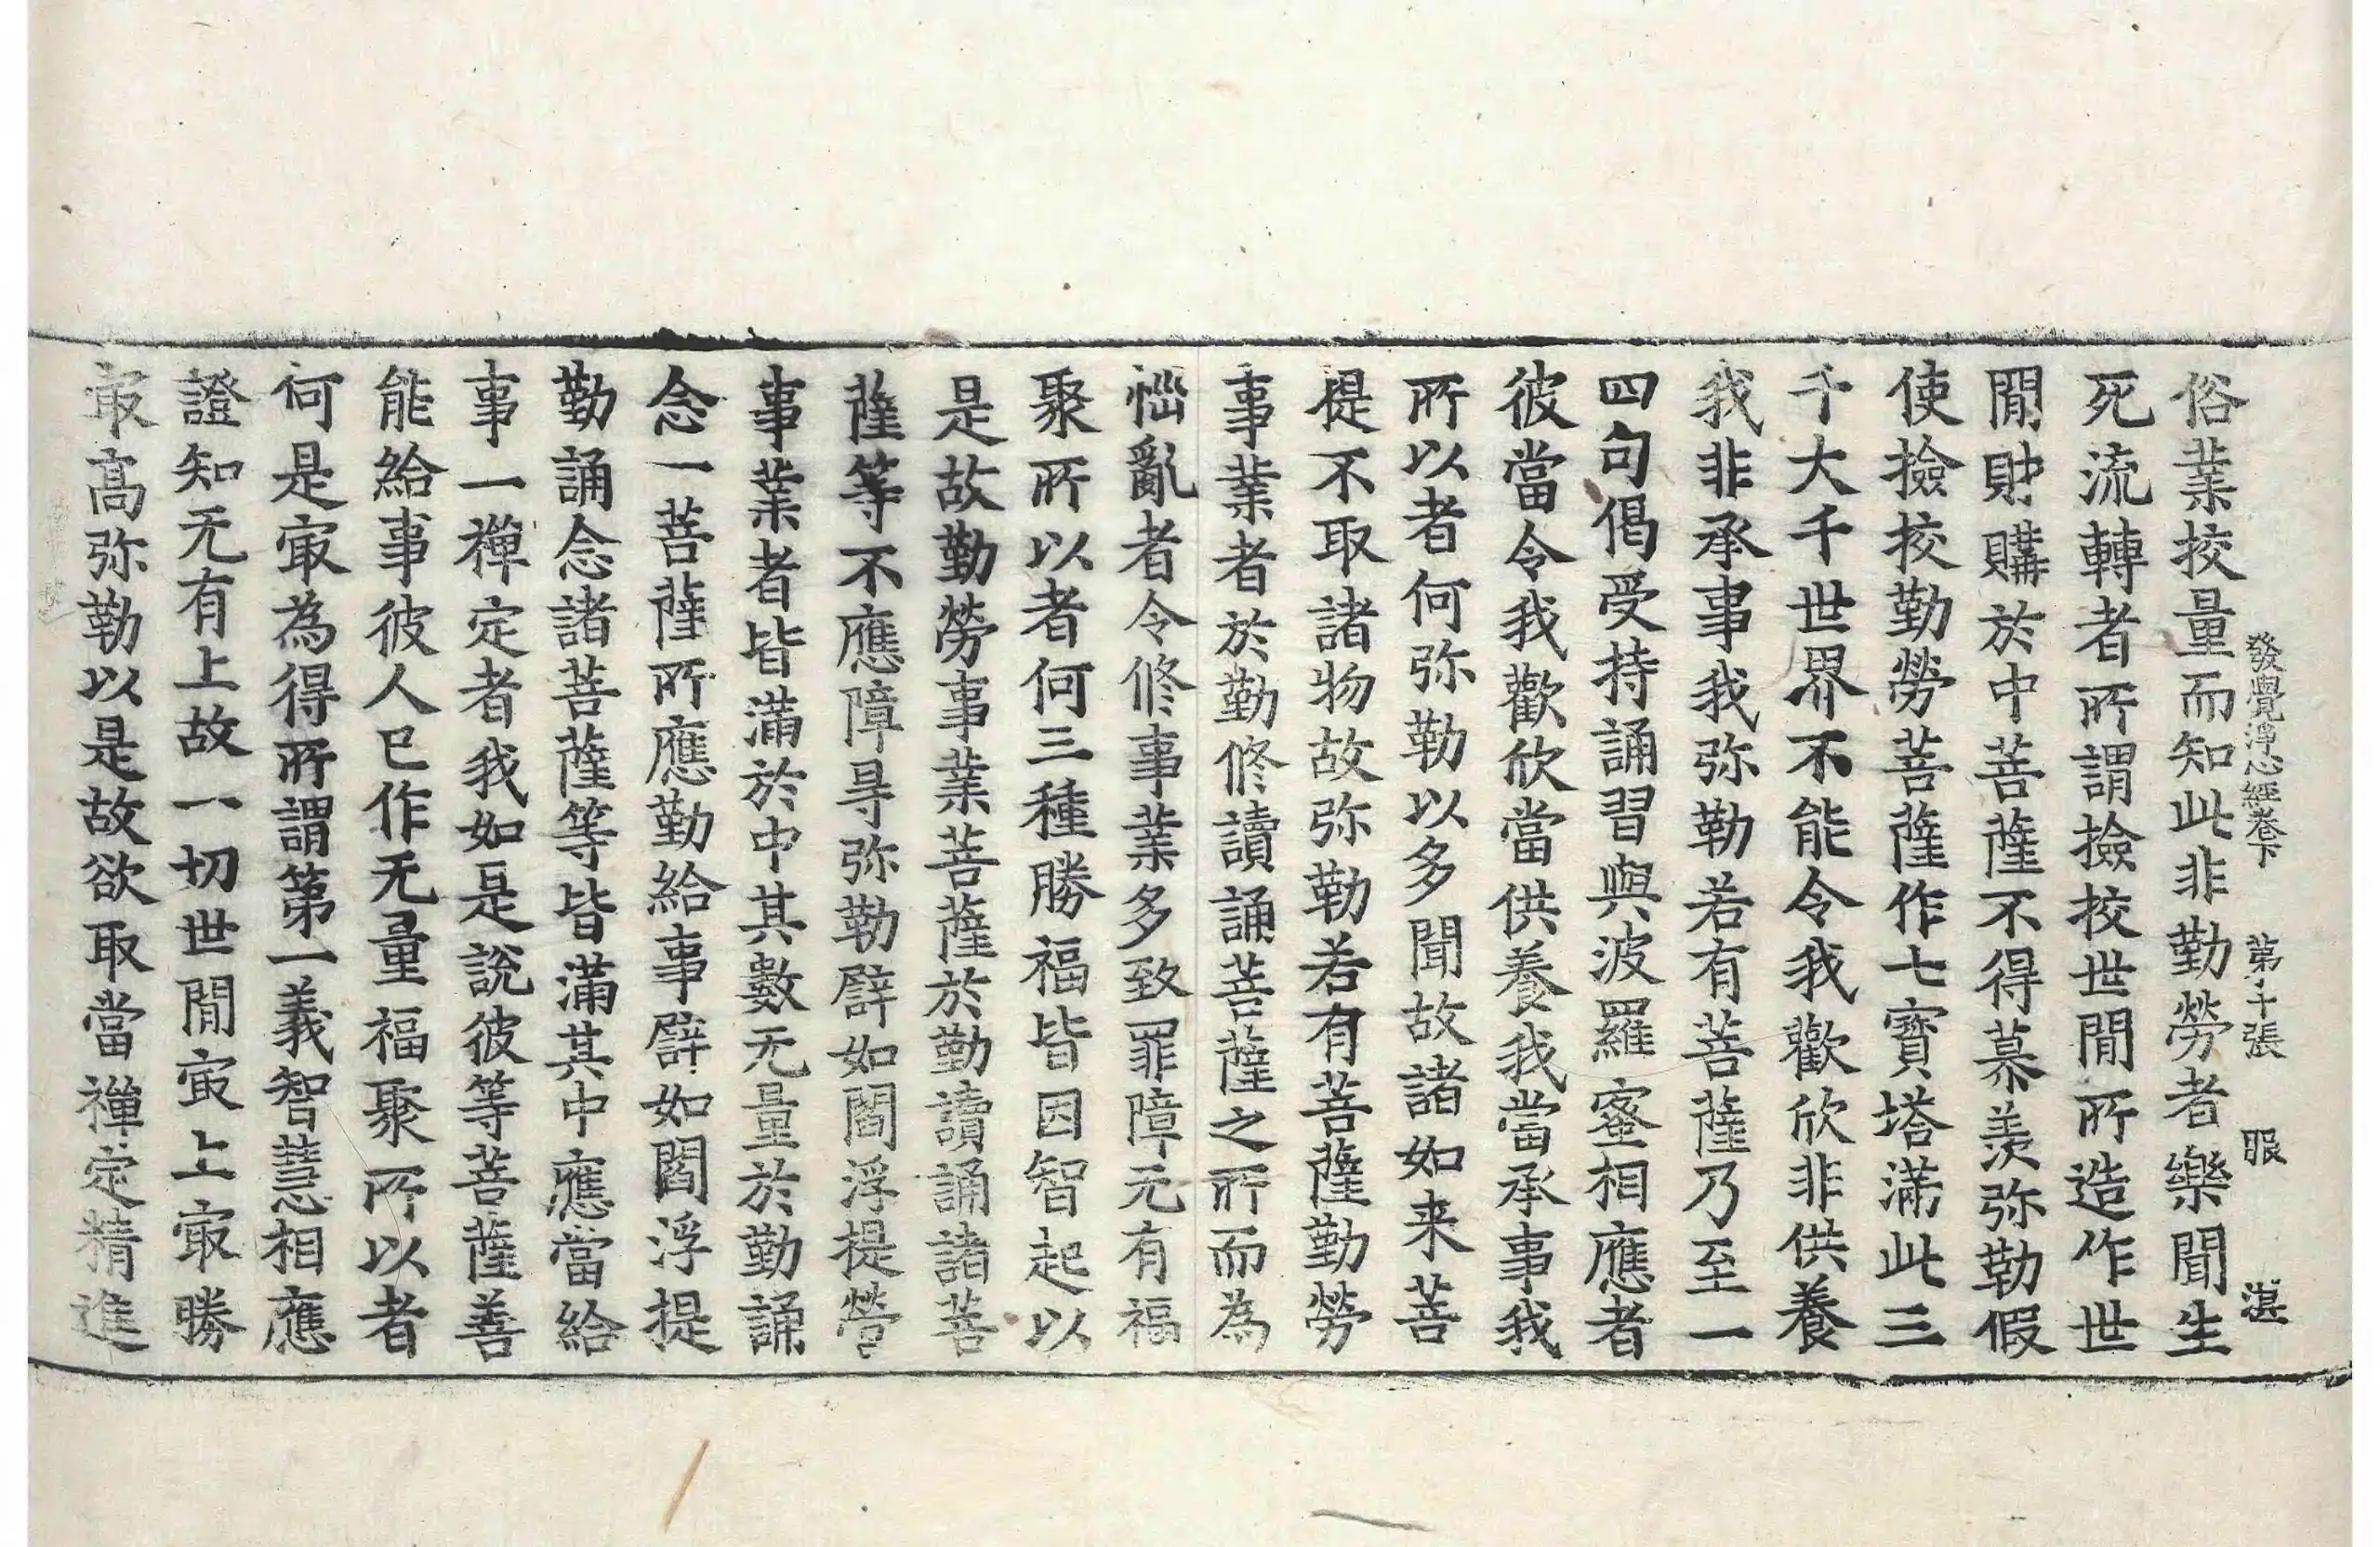 發覺淨心經卷下 第十張 服 湛
俗業挍量而知此非勤勞者樂聞生
死流轉者所謂撿挍世間所造作世
間財購於中菩薩不得慕羨弥勒假
使撿挍勤勞菩薩作七寶塔滿此三
千大千世界不能令我歡欣非供養
我非承事我弥勒若有菩薩乃至一
四句偈受持誦習與波羅蜜相應者
彼當令我歡欣當供養我當承事我
所以者何弥勒以多聞故諸如来菩
提不取諸物故弥勒若有菩薩勤勞
事業者於勤修讀誦菩薩之所而為
惱亂者令修事業多致罪障无有福
聚所以者何三種勝福皆因智起以
是故勤勞事業菩薩於勤讀誦諸菩
薩等不應障㝵弥勒譬如閻浮提營
事業者皆滿於中其數无量於勤誦
念一菩薩所應勤給事譬如閻浮提
勤誦念諸菩薩等皆滿其中應當給
事一禪定者我如是說彼等菩薩善
能給事彼人已作无量福聚所以者
何是冣為得所謂第一義智慧相應
證知无有上故一切世間冣上冣勝
冣髙弥勒以是故欲取當禪定精進